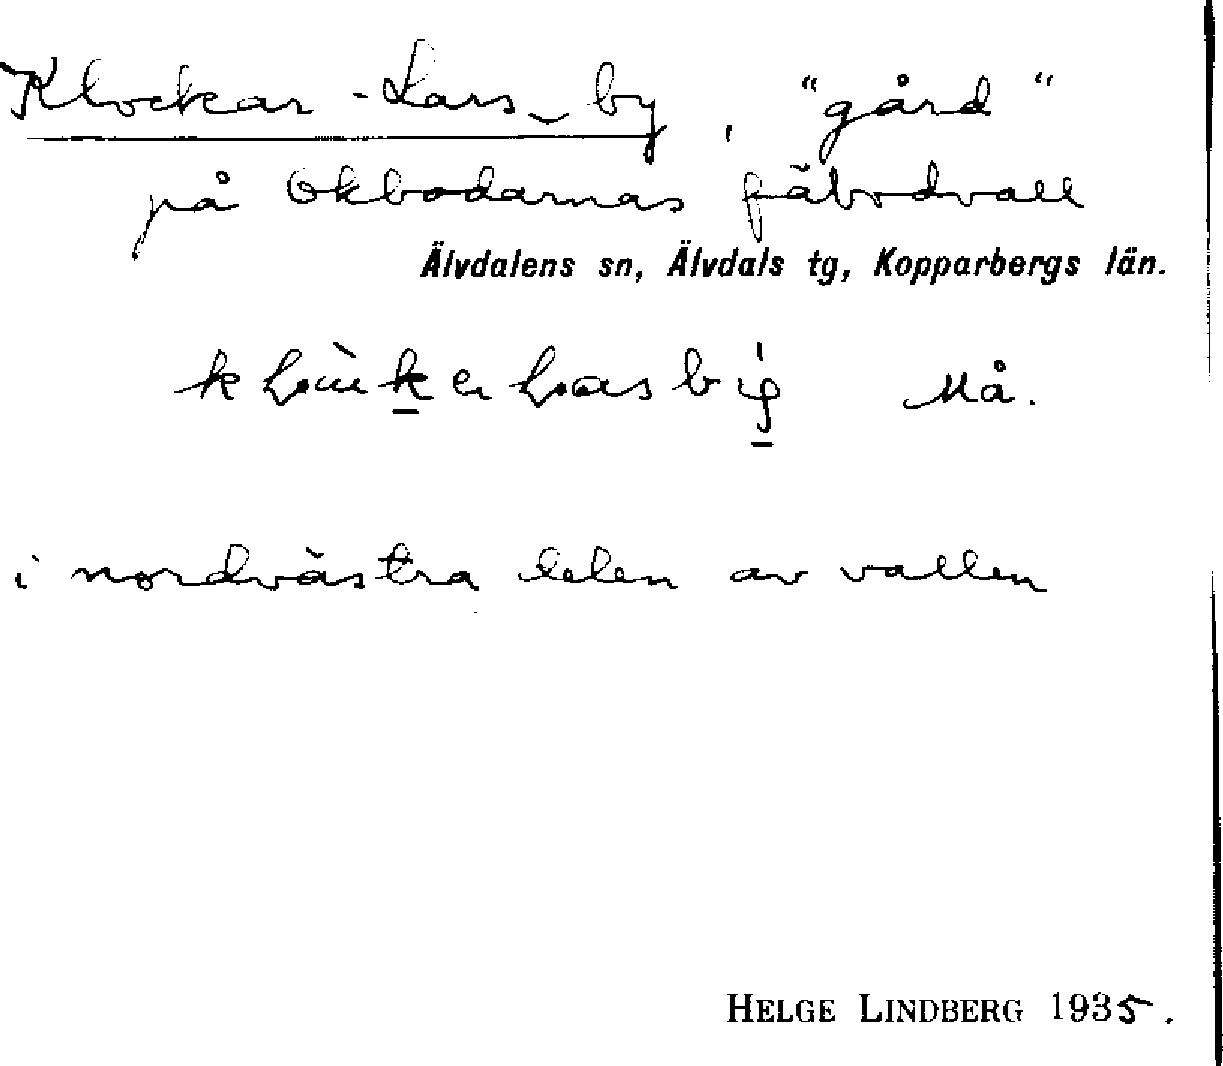 Klockar-Lars_by, "gård"
på Okbodarnas fäbodvall
Älvdalens sn, Älvdals tg, Kopparbergs län.
Må.
i nordvästra delen av vallen
HELGE LINDBERG 1935.